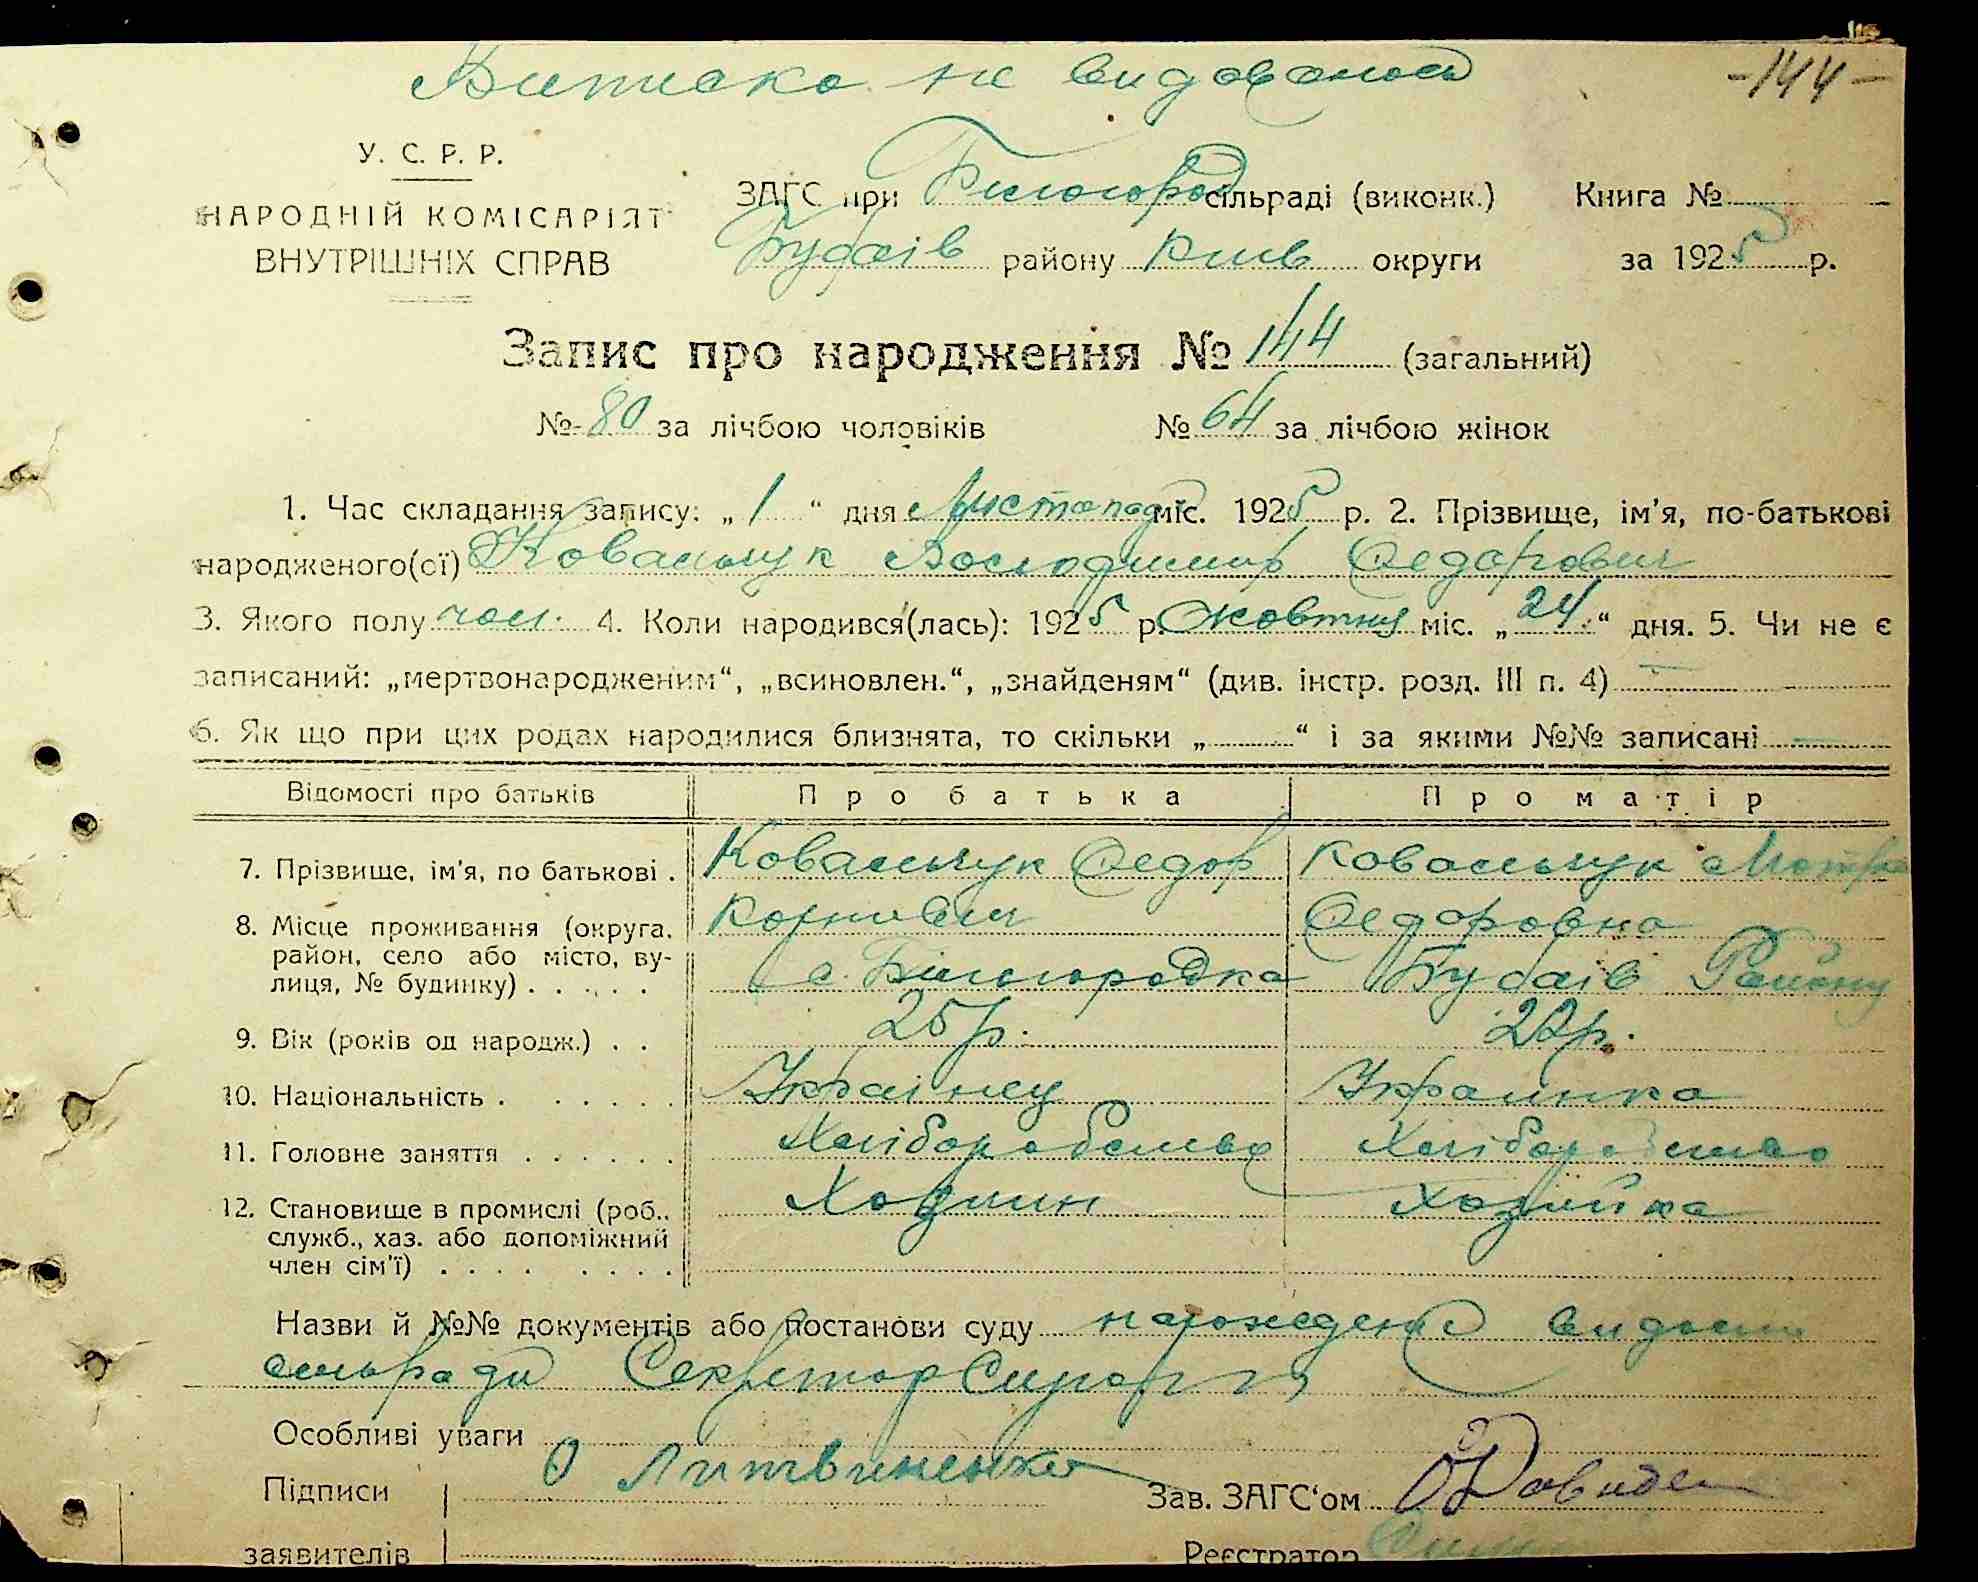 Виписка не видавалась
-144-
У. С. Р. Р.
НАРОДНІЙ КОМІСАРІЯТ
ВНУТРІШНІХ СПРАВ
ЗАГС при Білогород сільраді (виконк.) Книга №
Будаїв району Київ округи за 1925 р.
Запис про народження № 144 (загальний)
№ 80 за лічбою чоловіків № 64 за лічбою жінок
1. Час складання запису: „1“ дня Листопад міс. 1925 р. 2. Прізвище, ім'я, по-батькові
народженого(ої) Ковальчук Володимир Федорович
3. Якого полу чол. 4. Коли народився(лась): 1925 р. Жовтня міс. „24“ дня. 5. Чи не є
записаний: „мертвонародженим“, „всиновлен.“, „знайденям“ (див. інстр. розд. III п. 4)
6. Як що при цих родах народилися близнята, то скільки „ “ і за якими №№ записані
Відомості про батьків Про батька Про матір
7. Прізвище, ім'я, по батькові . Ковальчук Федор Ковальчук Мотря
Корнивич Федоровна
8. Місце проживання (округа,
район, село або місто, ву-
лиця, № будинку) . . . . . с. Білогородка Будаїв Району
9. Вік (років од народж.) . . 25 р. 22 р.
10. Національність . . . . . . Українец Украинка
11. Головне заняття . . . . . . Хліборобство Хліборобство
12. Становище в промислі (роб.,
служб., хаз. або допоміжний
член сім'ї) . . . . . . . . Хозяин Хозяйка
Назви й №№ документів або постанови суду нарождение видом
сільради Секретар
Особливі уваги
Підписи О Литвиненко Зав. ЗАГС'ом
заявителів Реєстратор